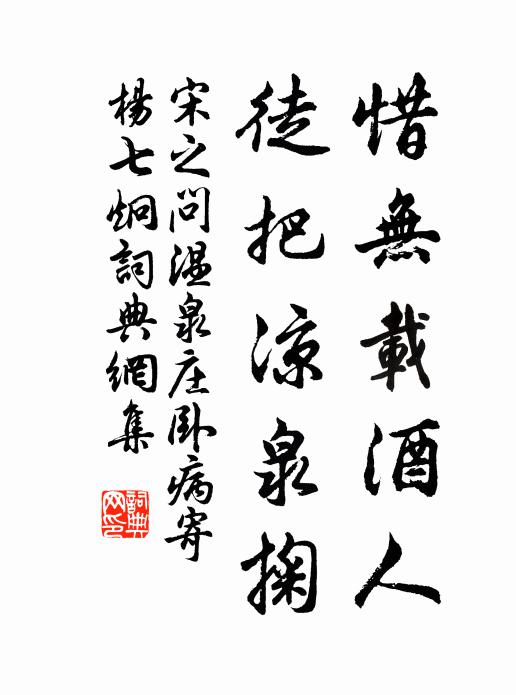 惜無載酒人
徒把涼泉掬
宋之問溫泉庄臥病寄
楊七炯詞典網集
詞典網印